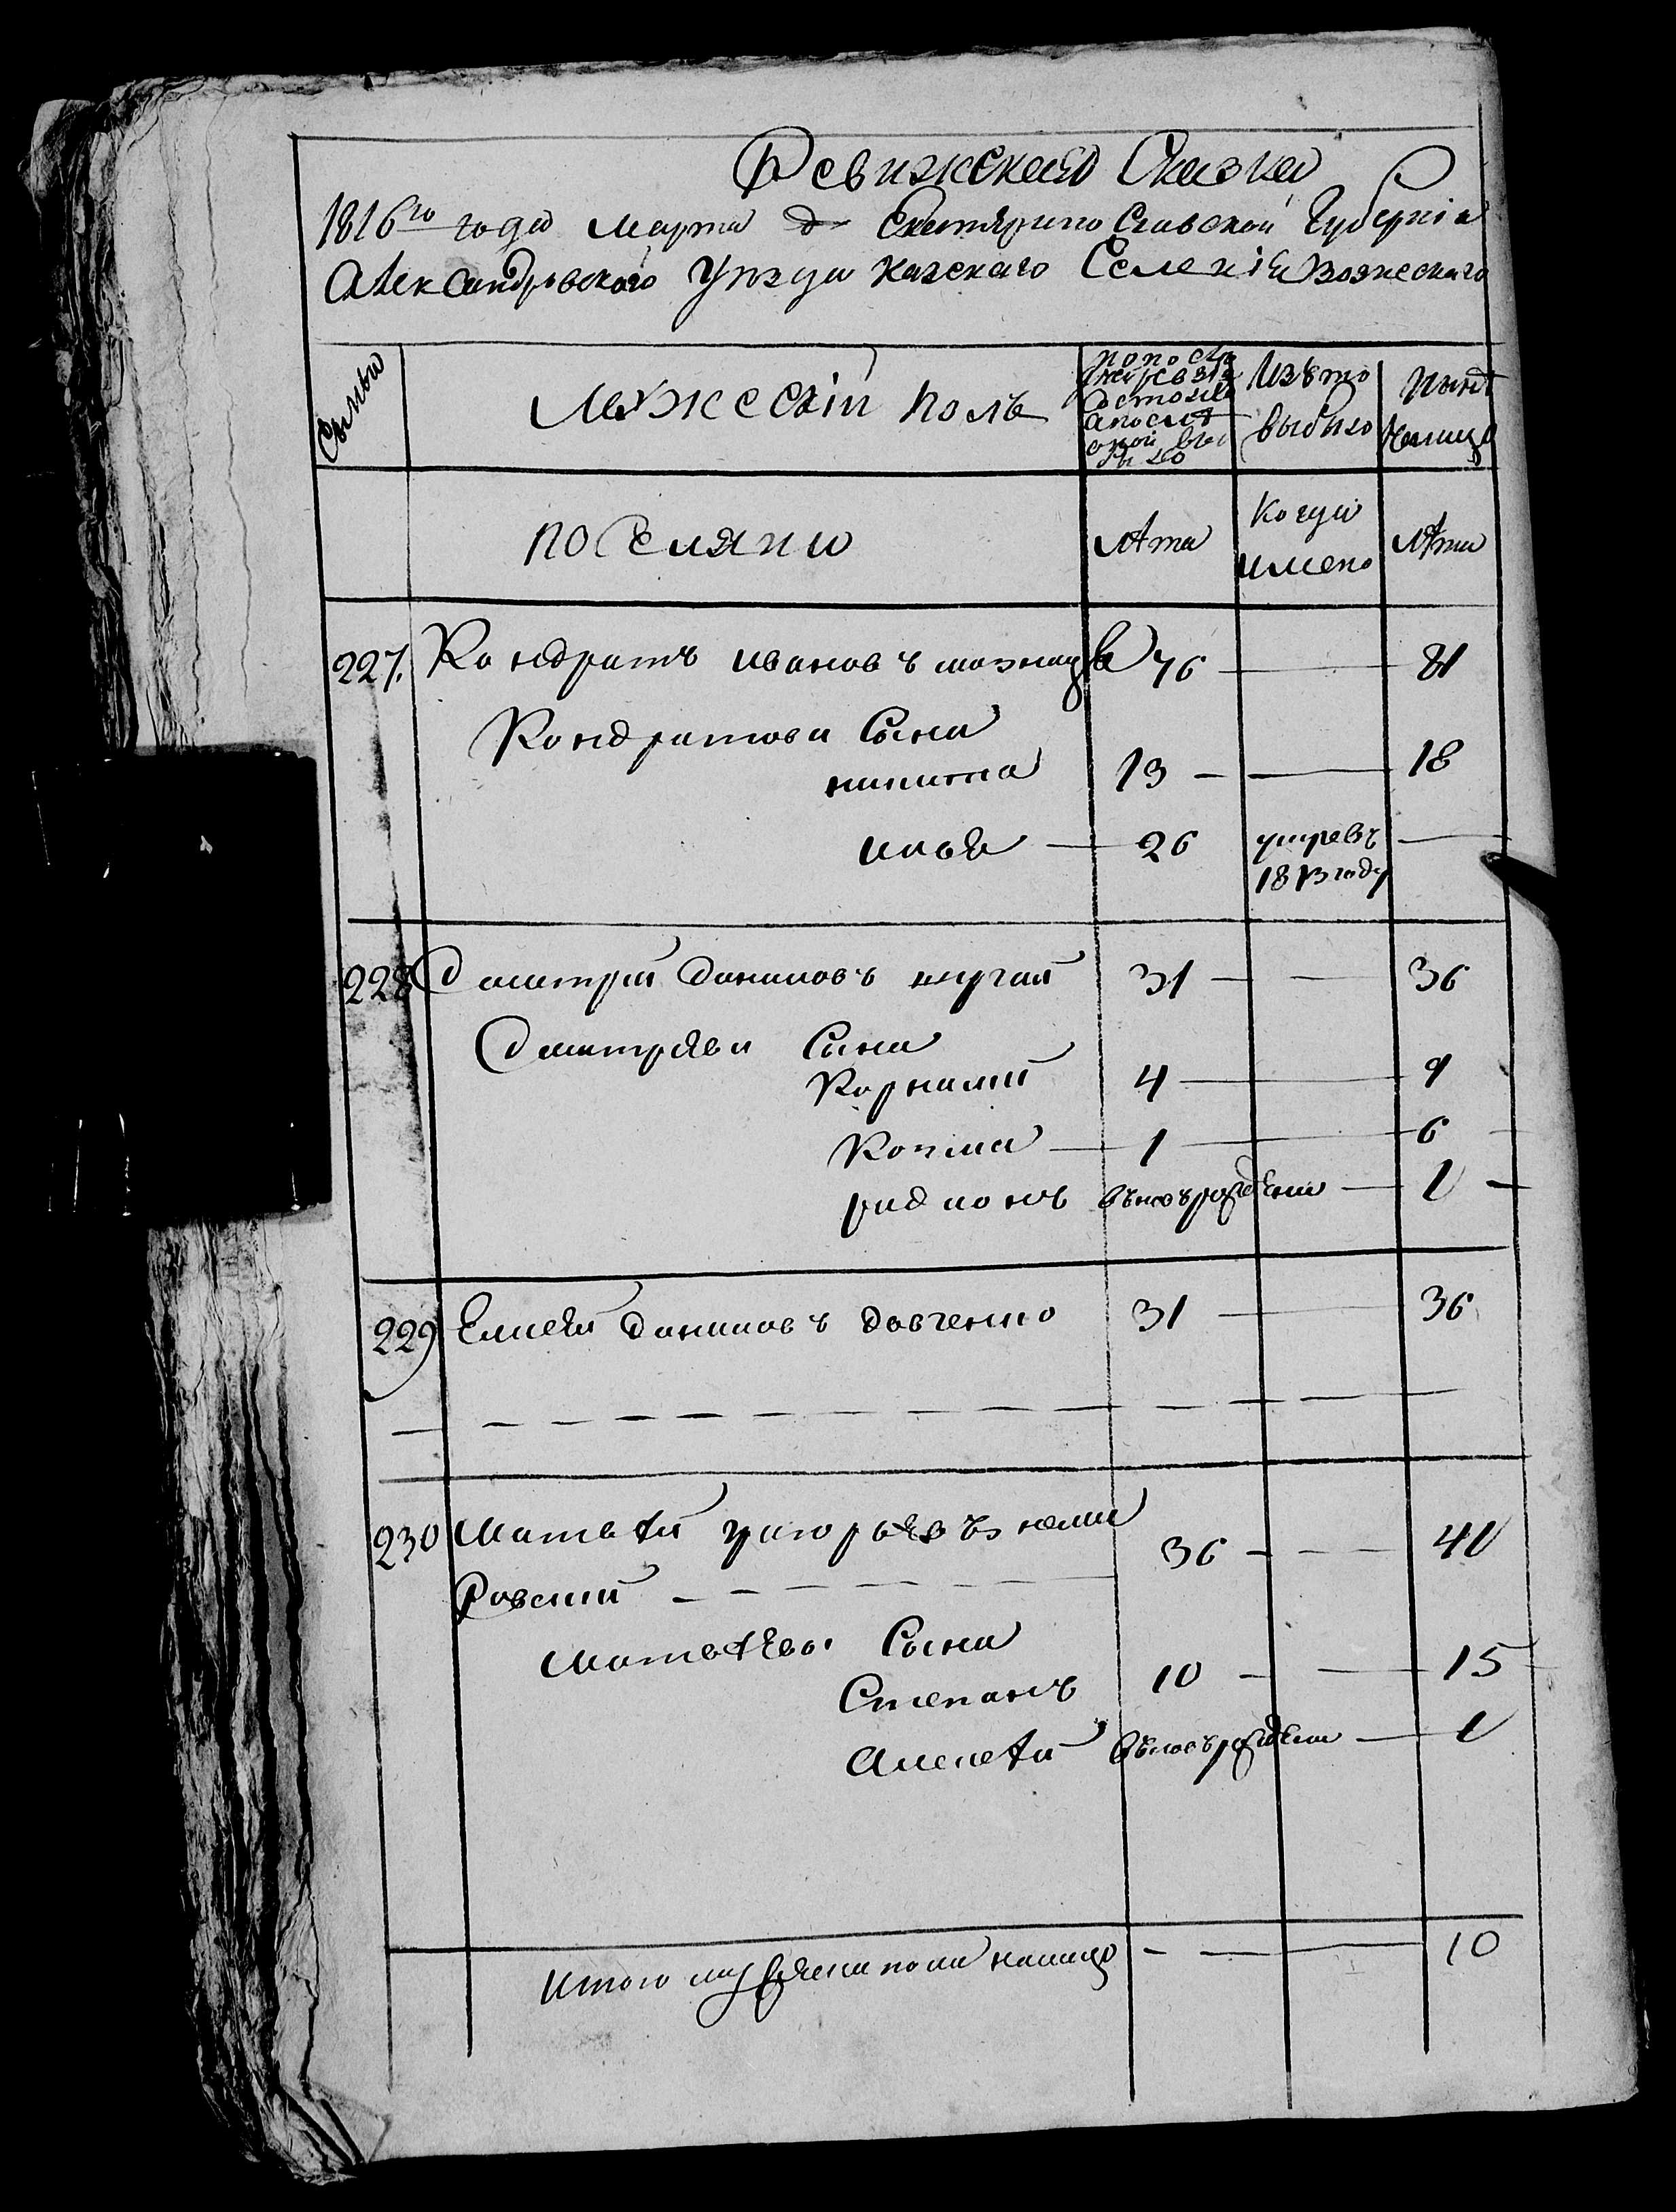 Ревижская Сказка
1816го года марта д Екатярино Славской Губерніи
Александровского Уѣзда казеннаго Селенія Вознескаго
Семьи
Мужескій полъ
попослѣ
ней ревизіи
состояло
апослѣ
оной вы
было
Изъ того
выбыло
Нынѣ
налицо
поселяни
лѣта
Когда
имено
лѣта
227. Кондратъ ивановъ 76 — 81
Кондратови Сына
никита 13 — 18
илья — 26 умревъ —
1813 году
228 Дмитрій даниловъ шугай 31 — 36
Дмитряви Сына
Корнилий 4 — 9
Козма — 1 — 6
радионъ въновърожденни — 1
229 Елисѣй даниловъ довгенко 31 — 36
— — — — — — — — — — — —
230 Матвѣй григорьявъ неми 36 — 41
Ровский — — — — —
Матвѣяви Сына
Степанъ 10 — 15
Алексѣй въновърожденни — 1
Итого мужеска пола налицо — — 10